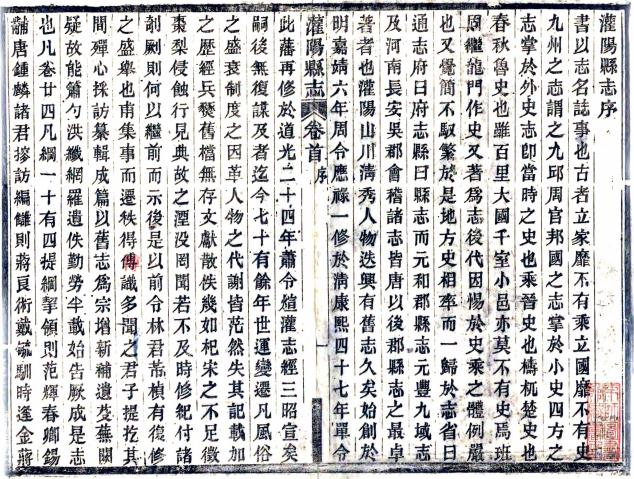 灌陽縣志序
書以志名誌事也古者立家靡不有乘立國靡不有史
九州之志謂之九丘周官邦國之志掌於小史四方之
志掌於外史志卽當時之史也乘晉史也檮杌楚史也
春秋魯史也雖百里大國千室小邑亦莫不有史焉班
固繼龍門作史又著爲志後代因惕於史乘之體例嚴
也又覺簡不馭繁於是地方史相率而一歸於志省曰
通志府曰府志縣曰縣志而元和郡縣志元豐九域志
及河南長安吳郡會稽諸志皆唐以後郡縣志之最卓
著者也灌陽山川清秀人物迭興有舊志久矣始創於
明嘉靖六年周令應祿一修於清康熙四十七年單令
灌陽縣志 卷首 序
此藩再修於道光二十四年蕭令煊灌志經三昭宣矣
嗣後無復諜及者迄今七十有餘年世運變遷凡風俗
之盛衰制度之因革人物之代謝皆茫然失其記載加
之歷經兵燹舊檔無存文獻散佚幾如杞宋之不足徵
棗梨侵蝕行見典故之湮沒罔聞若不及時修紀付諸
剞劂則何以繼前而示後是以前令林君芾楨有復修
之盛舉也甫集事而遷秩得傳識多聞之君子提扢其
間殫心採訪纂輯成篇以舊志爲宗增新補遺芟蕪闕
疑故能籥勺洪纖網羅遺佚勤勞半載始告厥成是志
也凡卷廿四凡綱一十有四提綱挈領則范輝春卿錫
黼唐鍾麟諸君摉訪編讎則蔣良術戴毓馴時逢金蔣